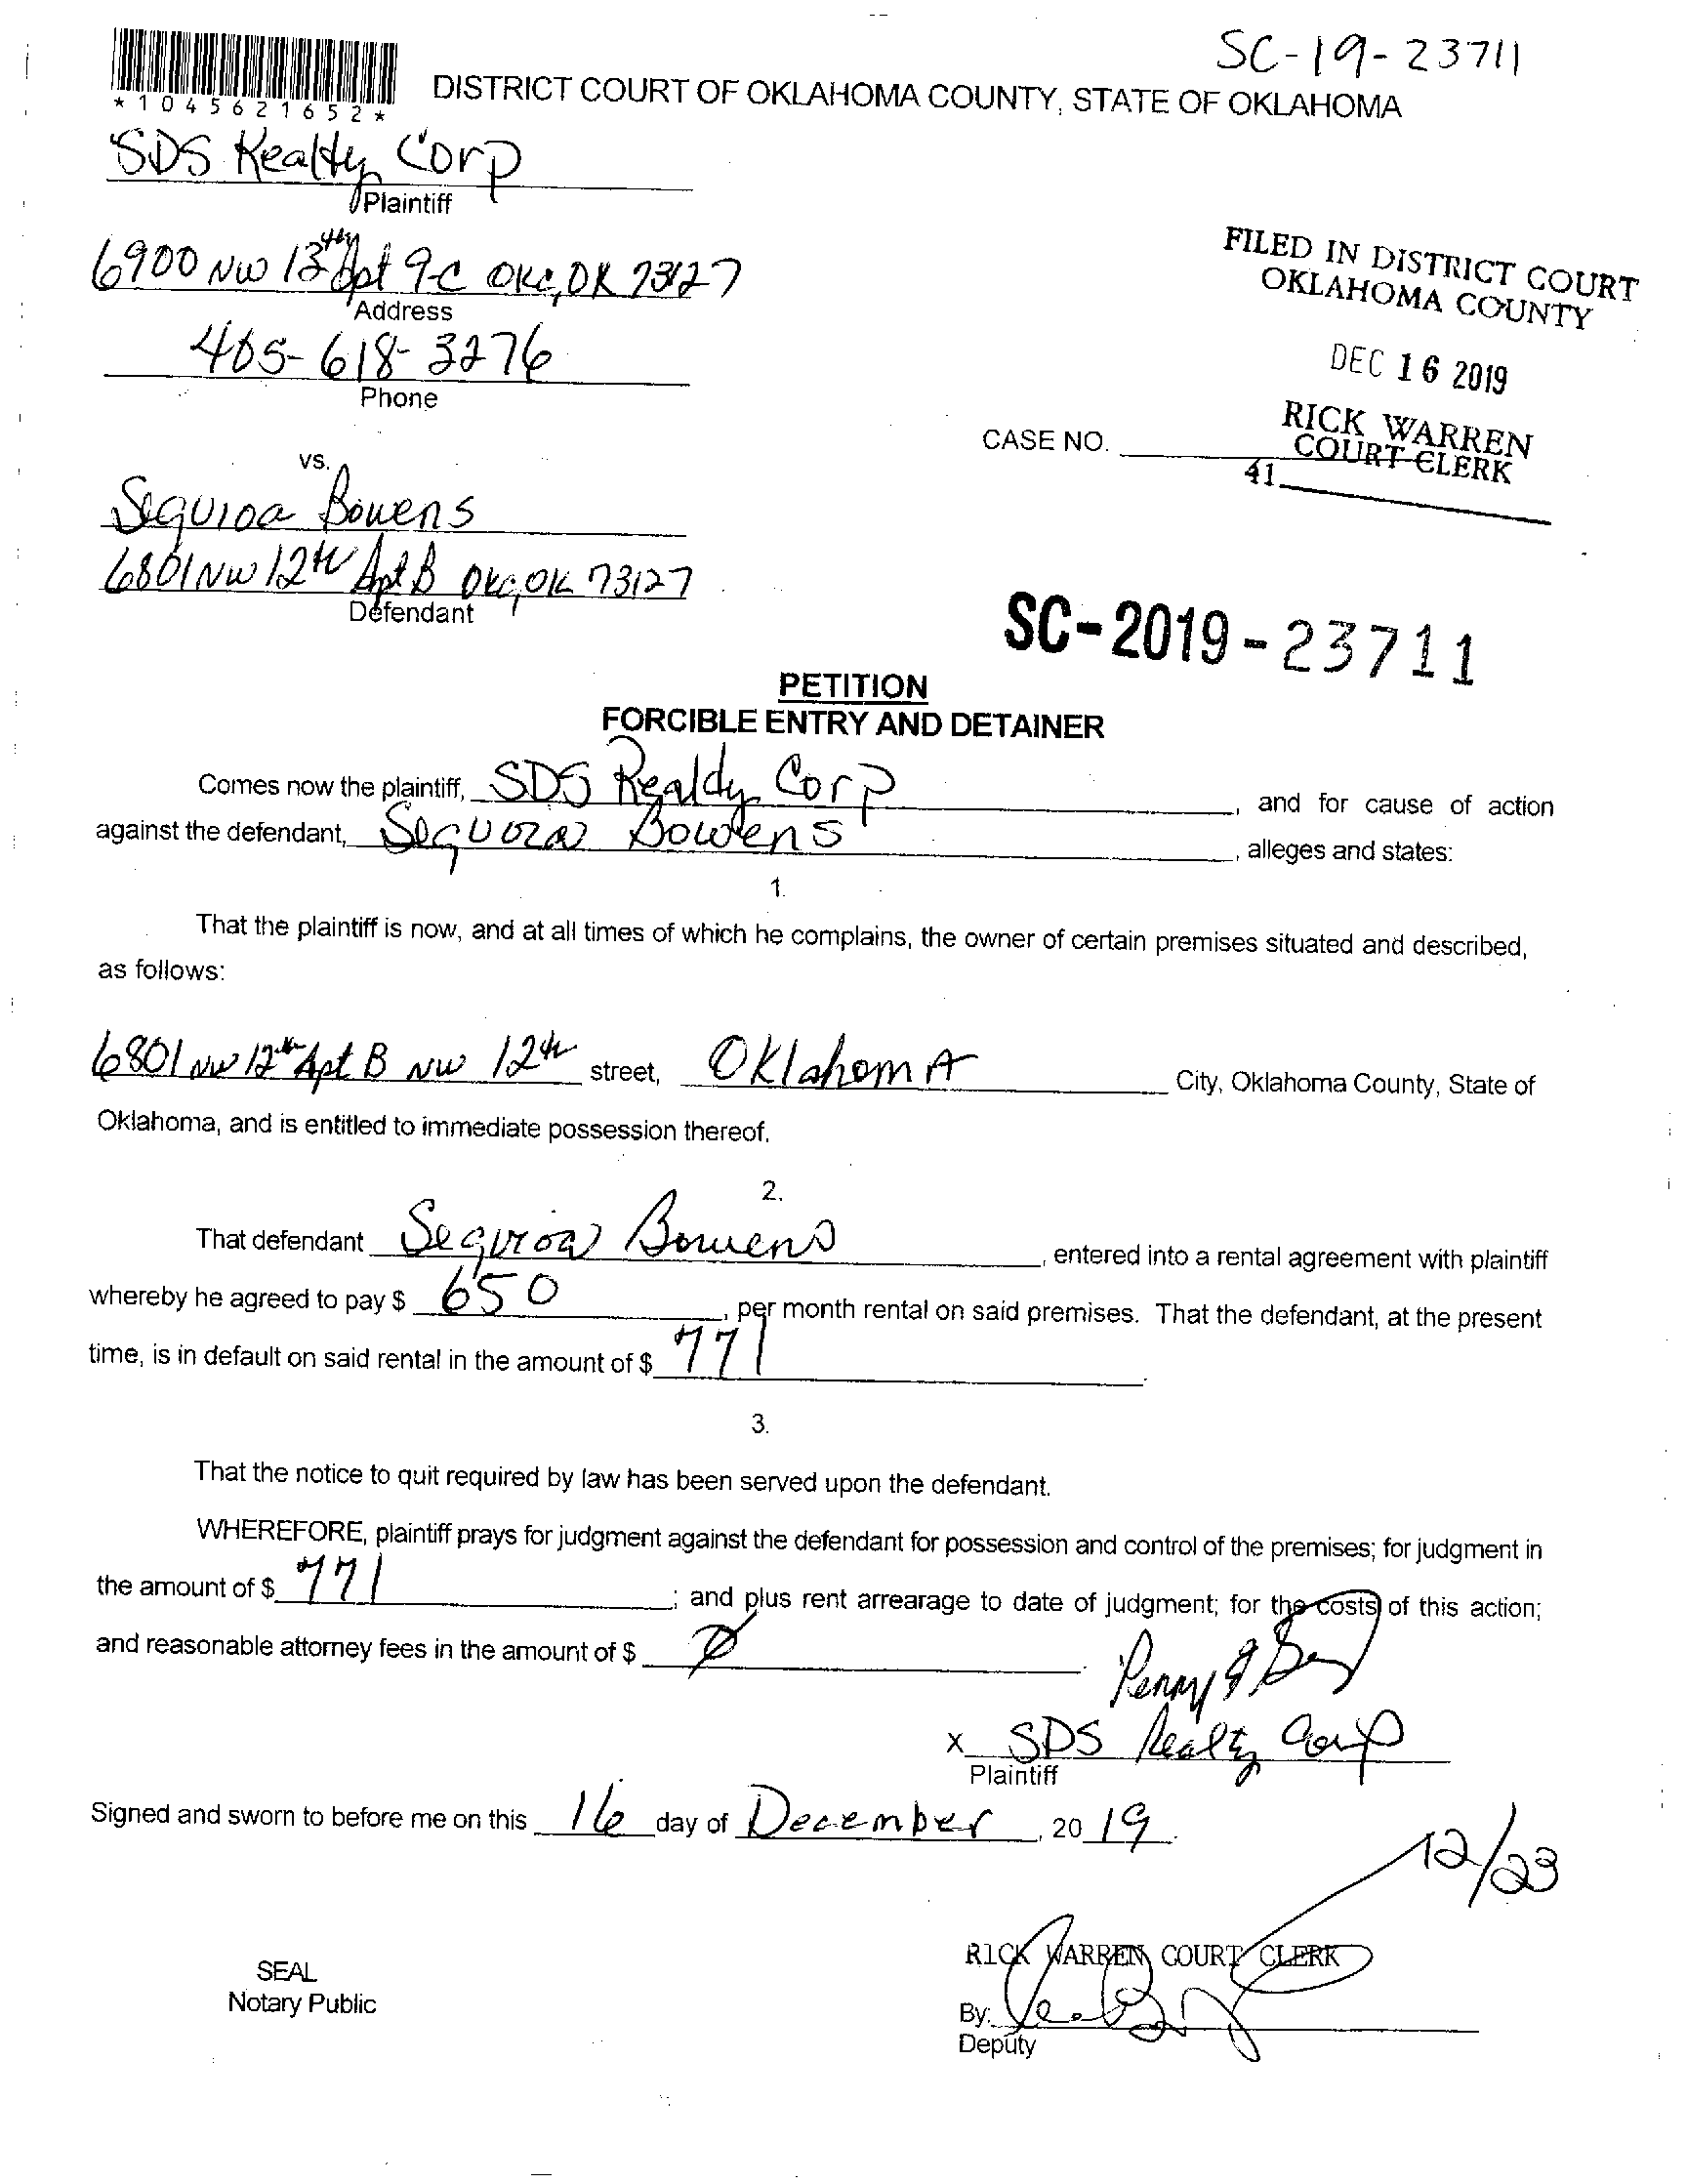 SC-19-23711
*1045621652*
DISTRICT COURT OF OKLAHOMA COUNTY, STATE OF OKLAHOMA
SDS Realty Corp
Plaintiff
6900 NW 13th Apt 9-C OKC, OK 73127
Address
405-618-3276
Phone
FILED IN DISTRICT COURT
OKLAHOMA COUNTY
DEC 16 2019
RICK WARREN
COURT CLERK
41
CASE NO.
vs.
Sequioa Bowens
6801 NW 12th Apt B OKC, OK 73127
Defendant
SC-2019-23711
PETITION
FORCIBLE ENTRY AND DETAINER
Comes now the plaintiff, SDS Realty Corp, and for cause of action
against the defendant, Sequioa Bowens, alleges and states:
1.
That the plaintiff is now, and at all times of which he complains, the owner of certain premises situated and described,
as follows:
6801 NW 12th Apt B NW 12th street, OklahomA City, Oklahoma County, State of
Oklahoma, and is entitled to immediate possession thereof.
2.
That defendant Sequioa Bowens, entered into a rental agreement with plaintiff
whereby he agreed to pay $ 650, per month rental on said premises. That the defendant, at the present
time, is in default on said rental in the amount of $ 771.
3.
That the notice to quit required by law has been served upon the defendant.
WHEREFORE, plaintiff prays for judgment against the defendant for possession and control of the premises; for judgment in
the amount of $ 771; and plus rent arrearage to date of judgment; for the costs of this action;
and reasonable attorney fees in the amount of $ 0.
Penny
X SDS Realty Corp
Plaintiff
Signed and sworn to before me on this 16 day of December, 2019.
12/23
SEAL
Notary Public
RICK WARREN COURT CLERK
By:
Deputy